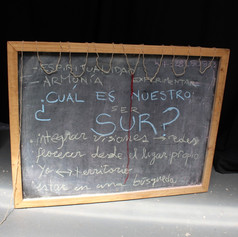 - ESPIRITUALIDAD
- ARMONÍA EXPERIMENTAR
¿CUÁL ES NUESTRO
SER
SUR?
• integrar visiones → redes
• parecer desde el lugar propio
• Yo ↔ territorio
• estar en una búsqueda